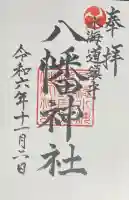 奉拝
水海道鎮守
八幡神社
令和六年十一月六日